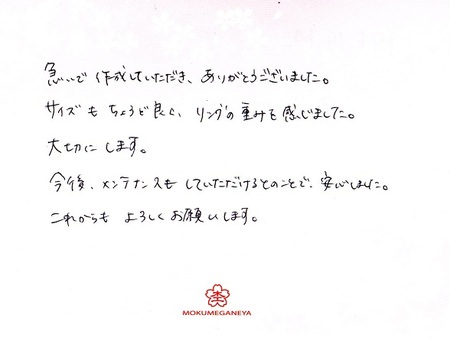 急いで作成していただき、ありがとうございました。
サイズもちょうど良く、リングの重みを感じました。
大切にします。
今後、メンテナンスもしていただけるとのことで、安心しました。
これからもよろしくお願いします。
杢
MOKUMEGANEYA